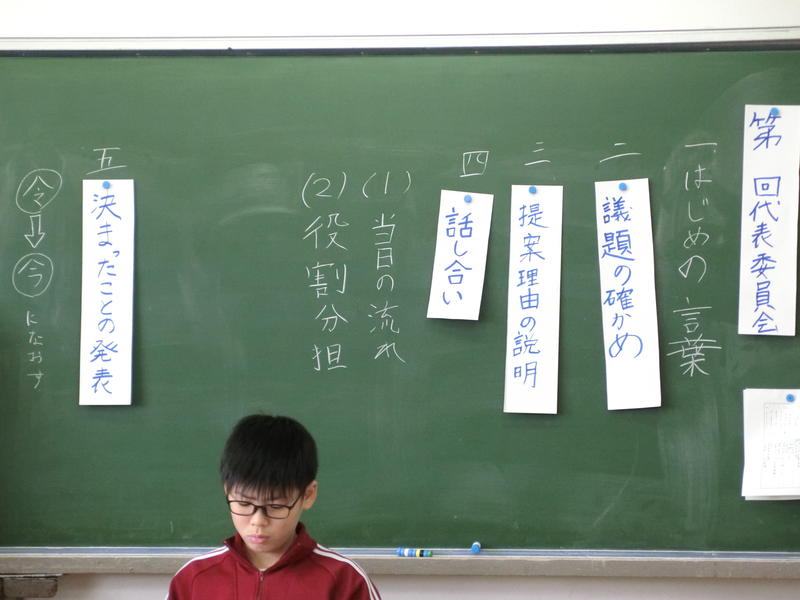 第 回代表委員会
一 はじめの言葉
二 議題の確かめ
三 提案理由の説明
四 話し合い
(1) 当日の流れ
(2) 役割分担
五 決まったことの発表
令⇨令になおす